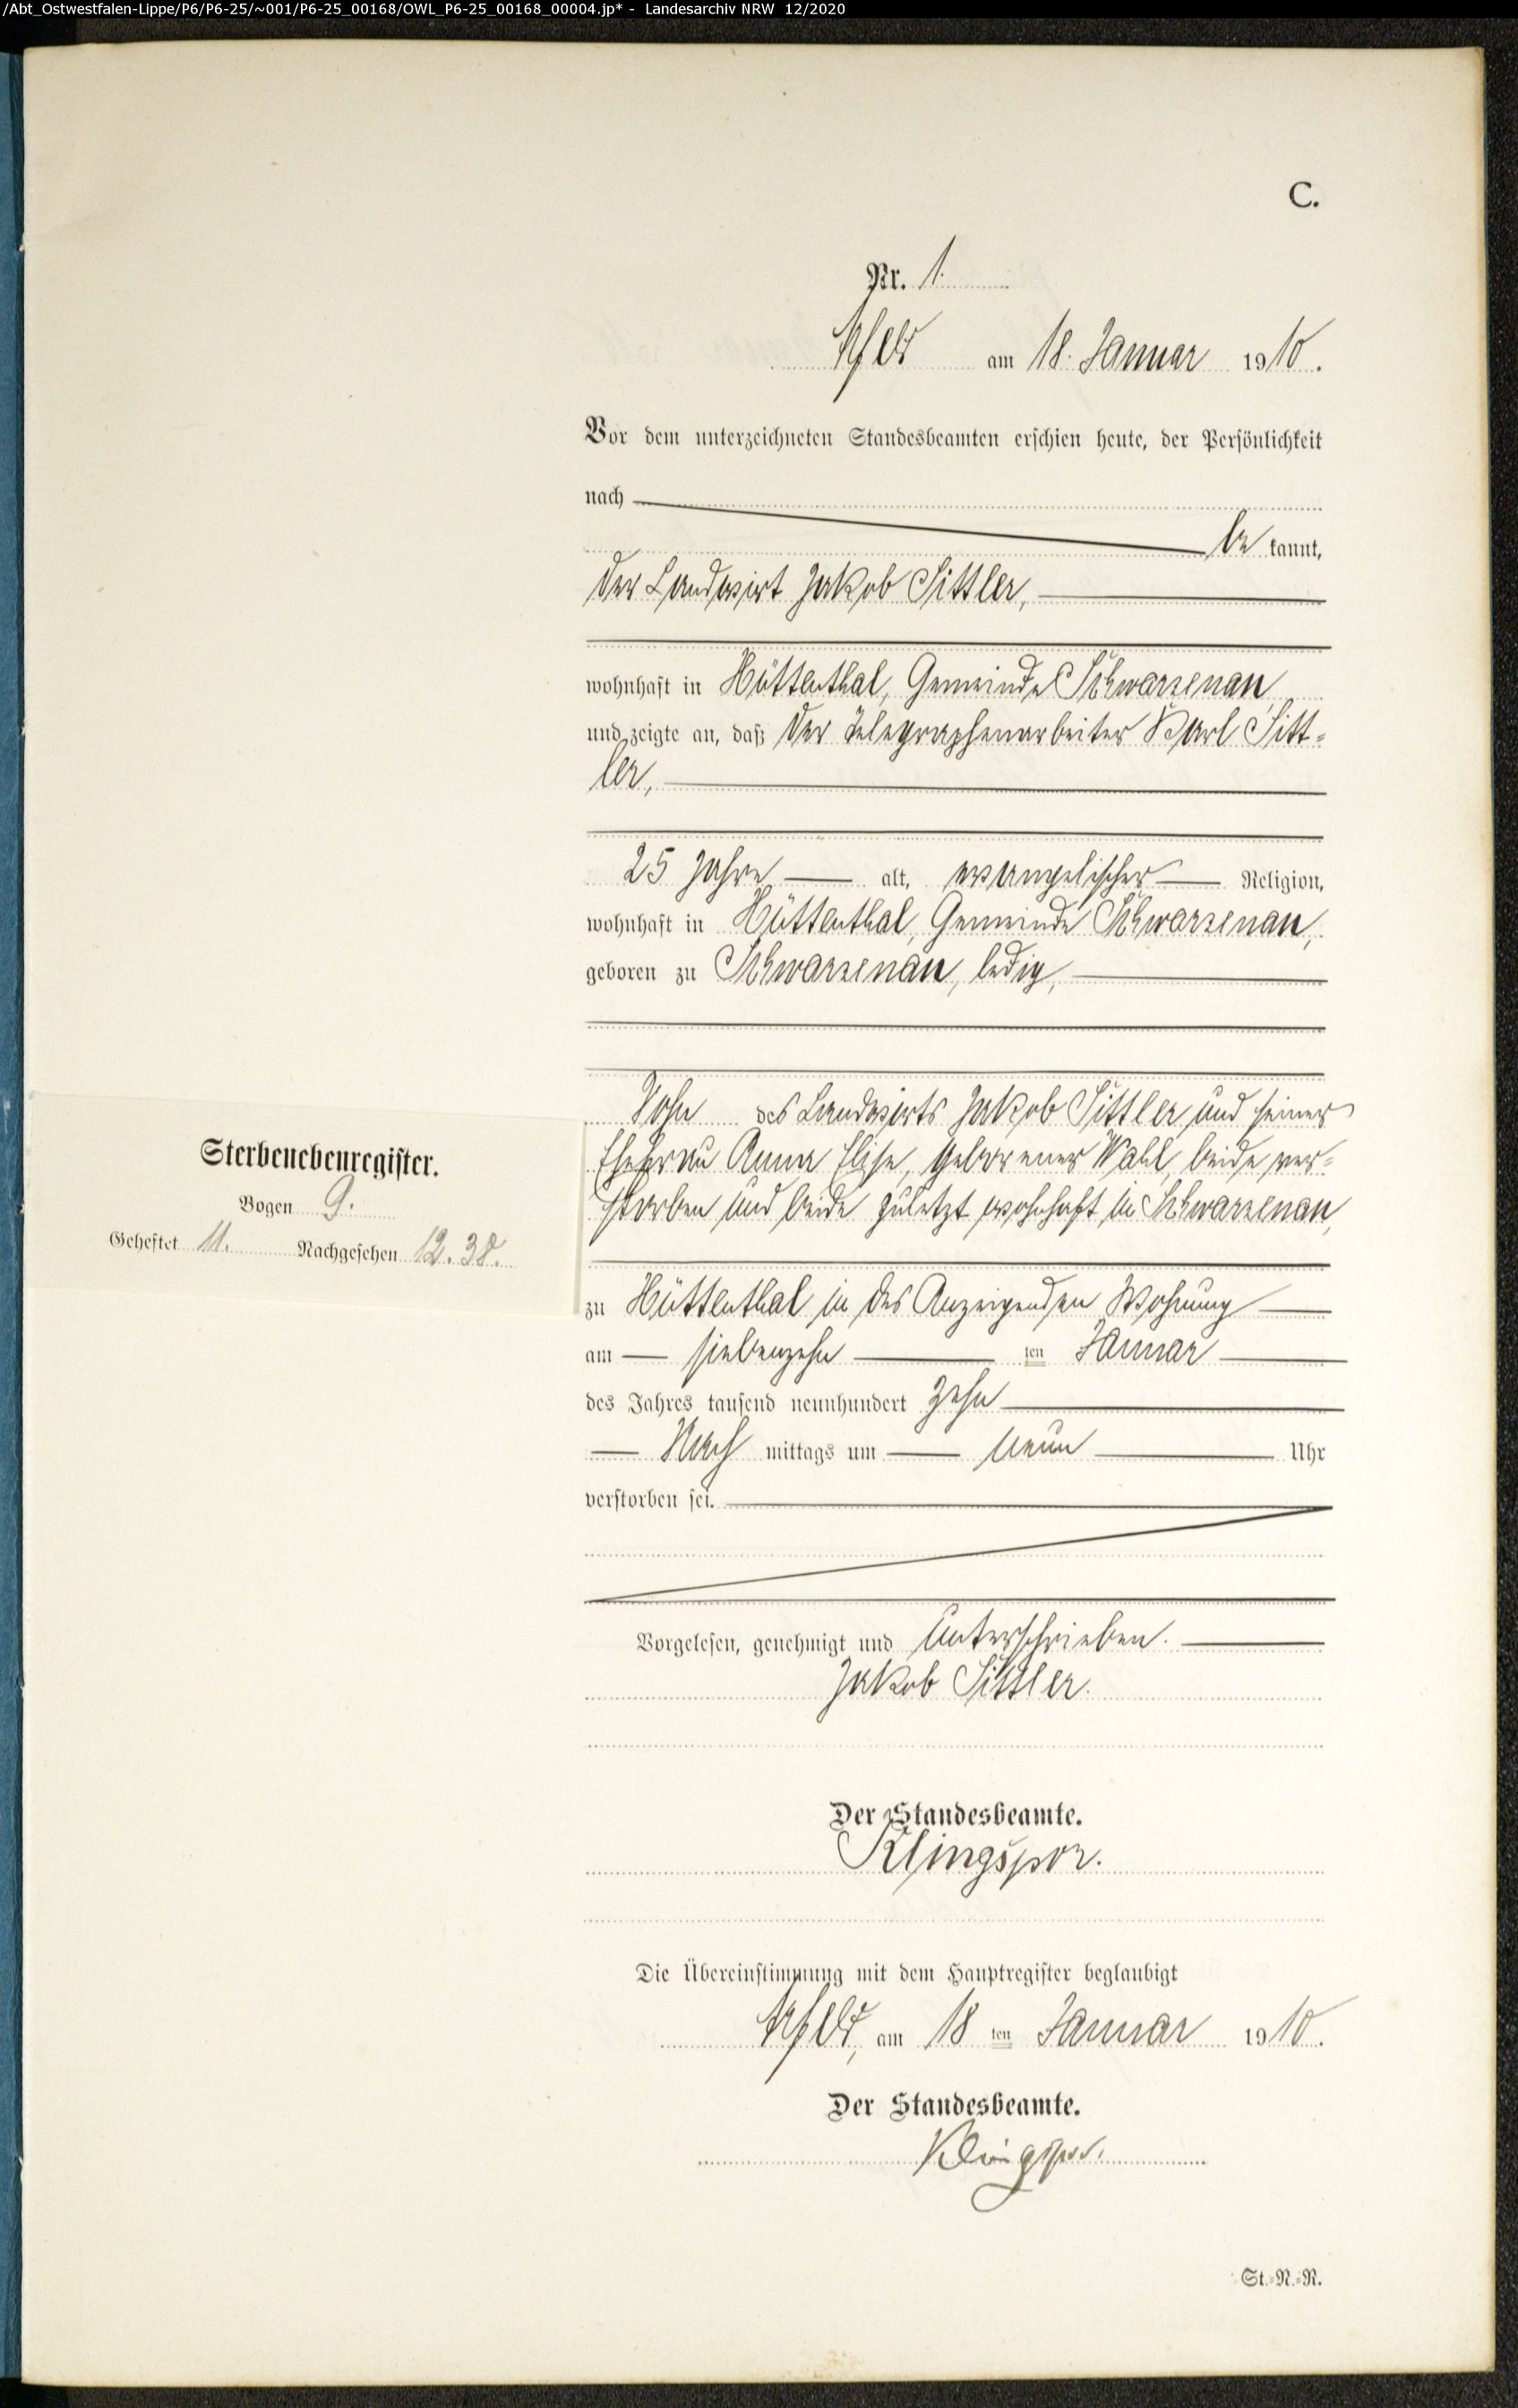 /Abt_Ostwestfalen-Lippe/P6/P6-25/~001/P6-25_00168/OWL_P6-25_00168_00004.jp* - Landesarchiv NRW 12/2020
C.
Nr. 1.
Arfeld am 18. Januar 1910.
Vor dem unterzeichneten Standesbeamten erschien heute, der Persönlichkeit
nach
be kannt,
der Landwirt Jakob Sittler,
wohnhaft in Hüttenthal, Gemeinde Schwarzenau,
und zeigte an, daß der Telegraphenarbeiter Karl Sitt-
ler,
25 Jahre alt, evangelischer Religion,
wohnhaft in Hüttenthal, Gemeinde Schwarzenau,
geboren zu Schwarzenau, ledig,
Sohn des Landwirts Jakob Sittler und seiner
Ehefrau Anna Elise, geborener Wahl, beide ver-
storben und beide zuletzt wohnhaft in Schwarzenau,
Sterbenebenregister.
Bogen 9.
Geheftet 11. Nachgesehen 12. 38.
zu Hüttenthal in des Anzeigenden Wohnung
am siebenzehn ten Januar
des Jahres tausend neunhundert zehn
Nach mittags um neun Uhr
verstorben sei.
Vorgelesen, genehmigt und unterschrieben.
Jakob Sittler.
Der Standesbeamte.
Klingspor.
Die Übereinstimmung mit dem Hauptregister beglaubigt
Arfeld, am 18 ten Januar 1910.
Der Standesbeamte.
Klingspor.
St.-N.-R.